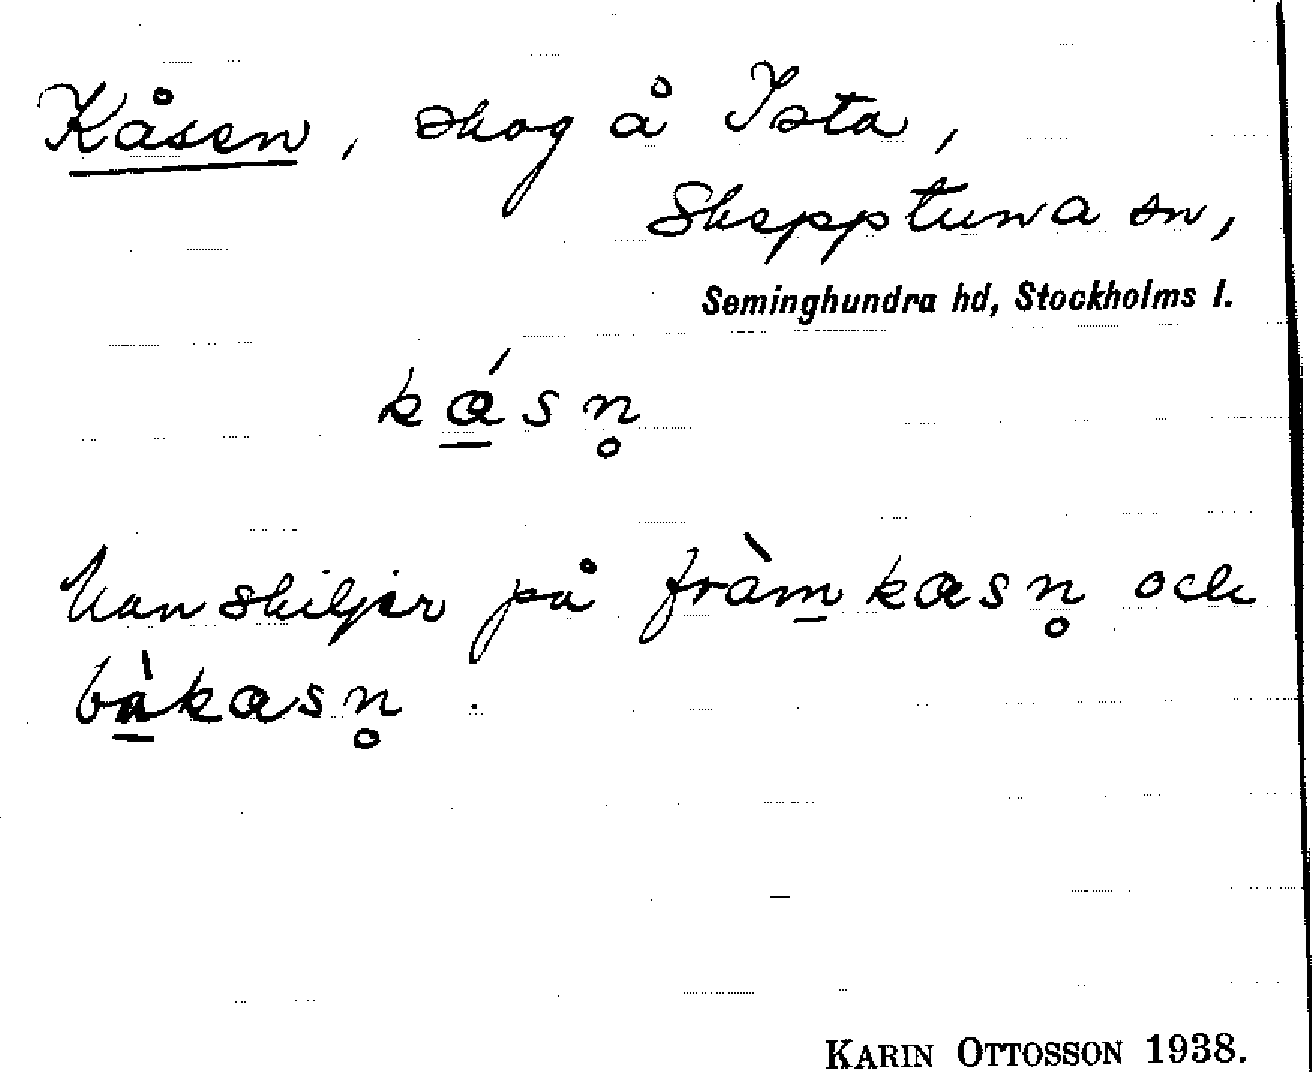 Kåsen, skog å Ista,
Skepptuna sn,
Seminghundra hd, Stockholms l.
ká̱sn̥
Man skiljer på fràm̱kasn̥ och
bà̱kasn̥.
KARIN OTTOSSON 1938.